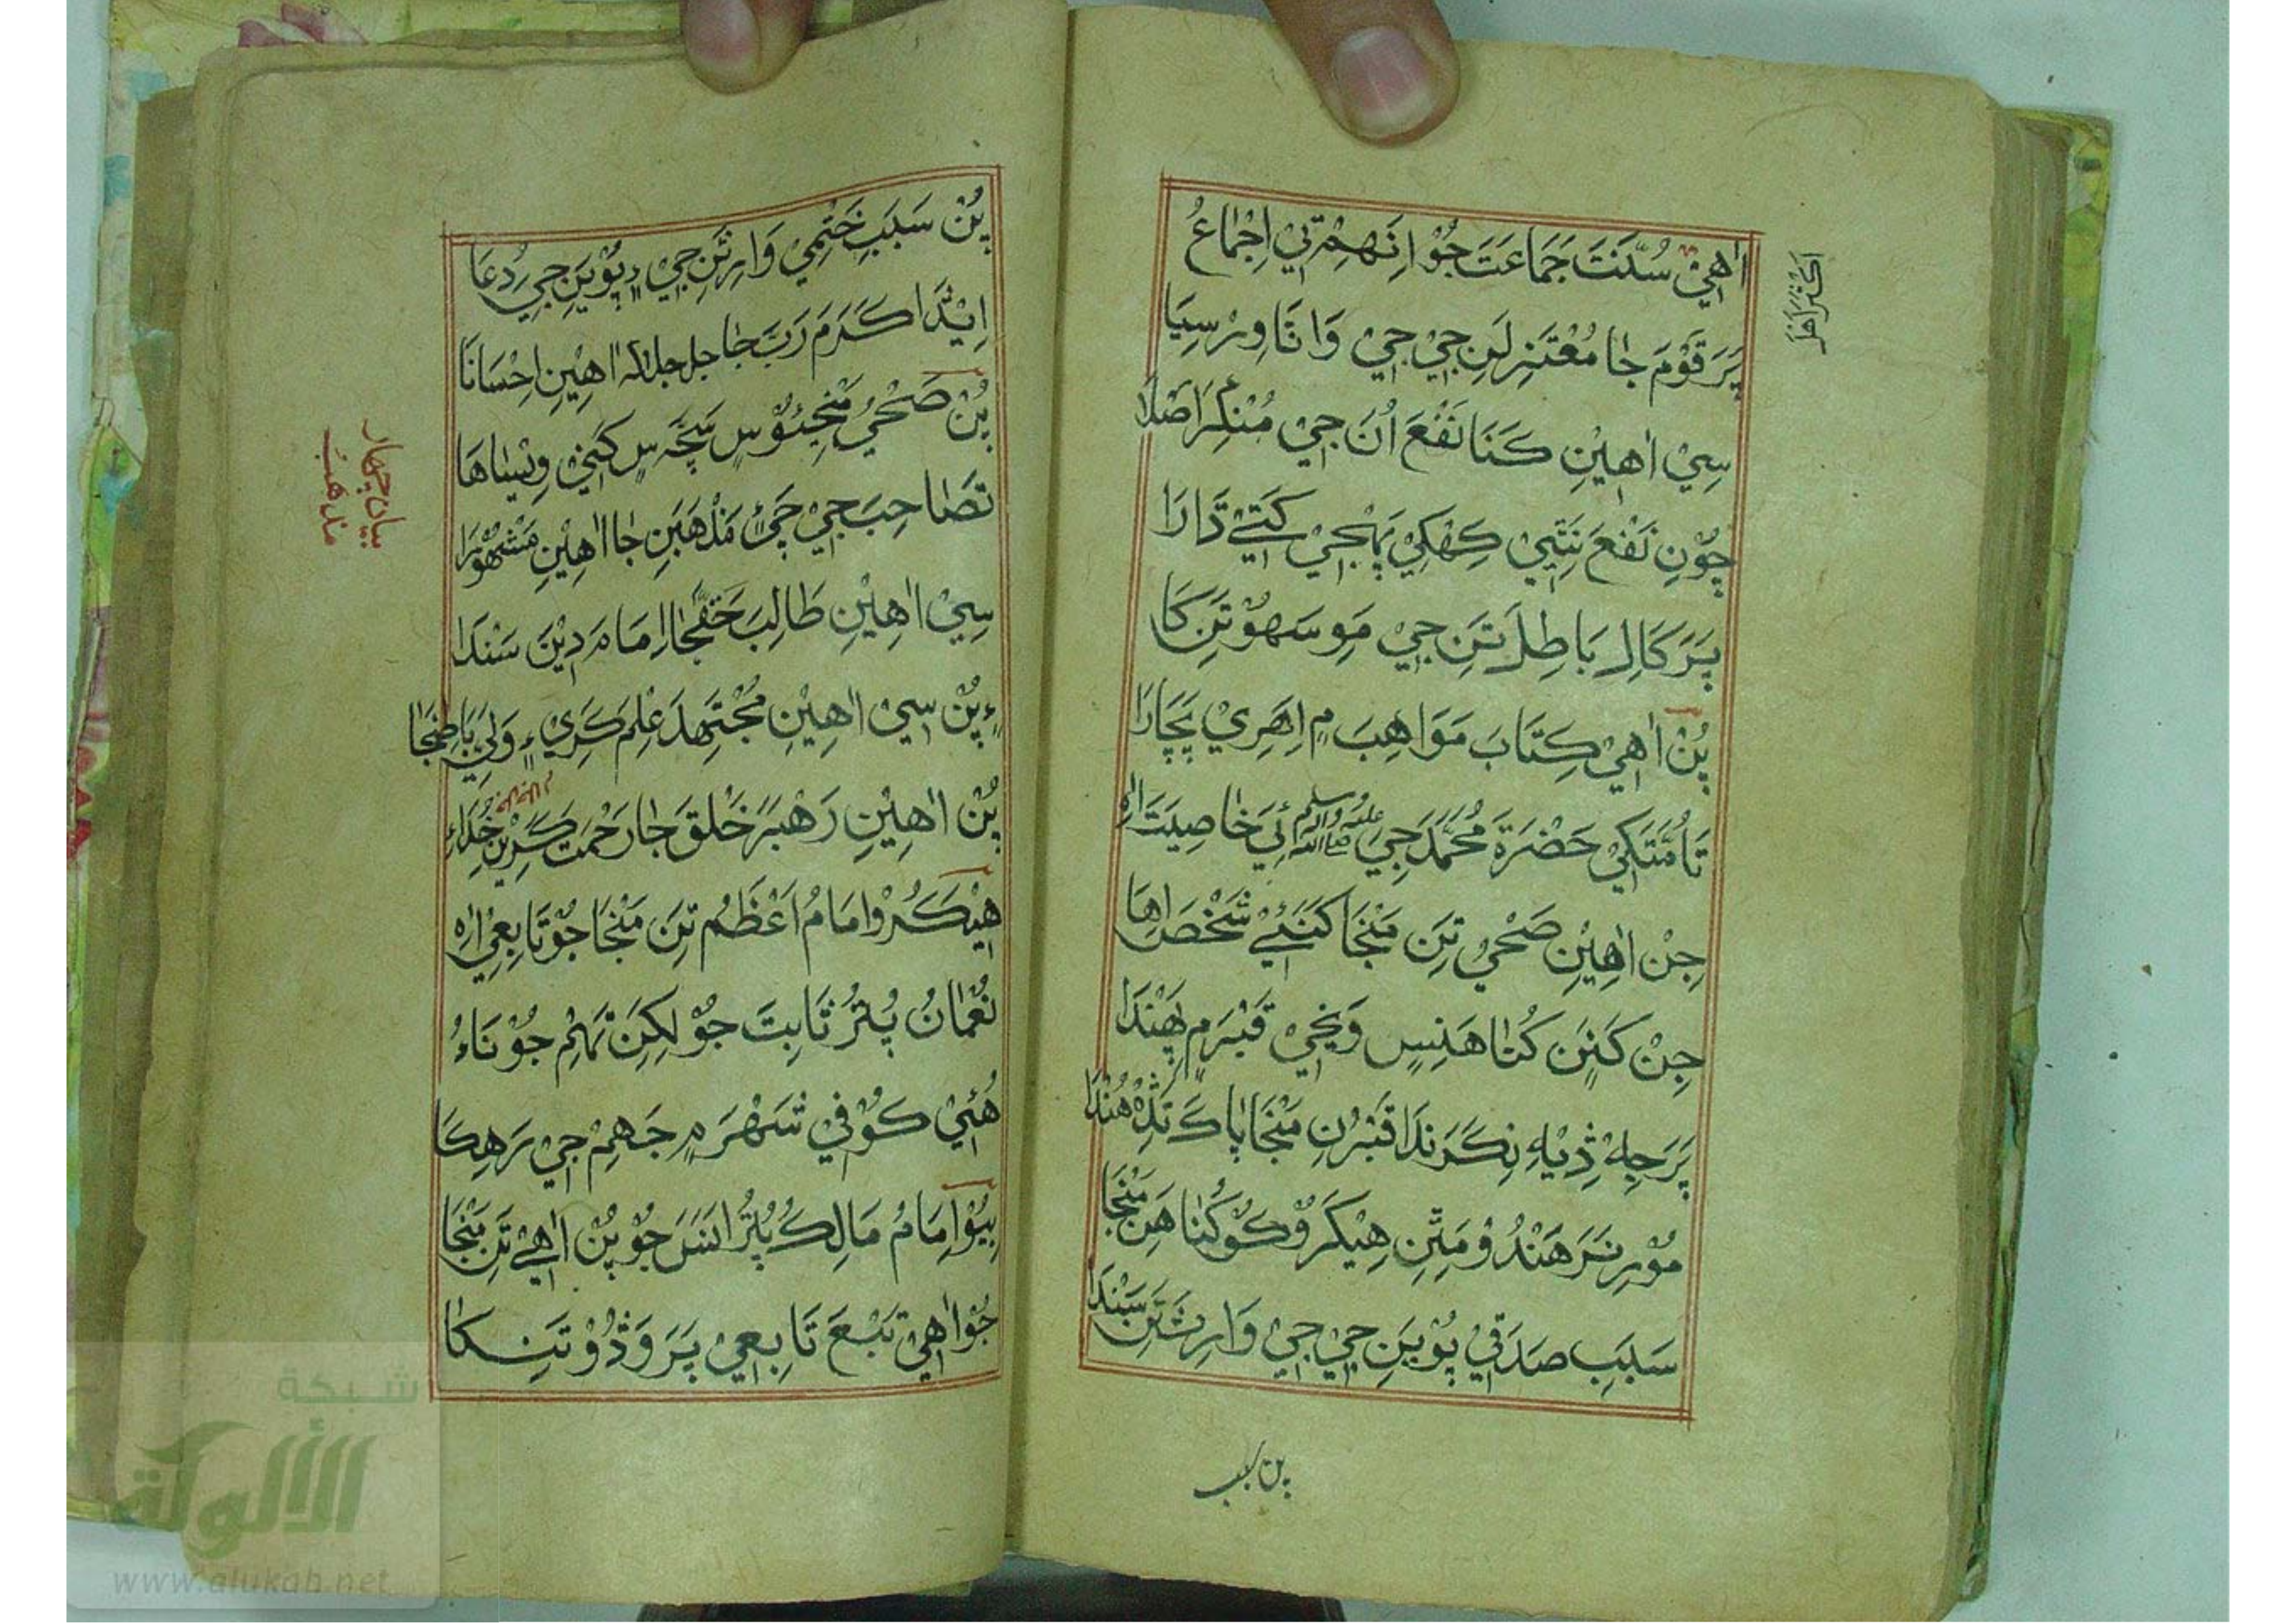 اٰهِيْ سُنَّتَ جَمَاعَتَ جُوْ اِنَهِمْ تٖيْ اِجْمَاعُ
پَرَ قَوْمَ جٰا مُعْتَزِلَنِ جٖيْ جٖيْ وَاتَا وِرْسِيَا
سٖيْ اٰهِيْنِ كَنَا نَفْعَ اُنَ جٖيْ مُنْكِرَ اَصْلَا
چُوْنِ نَفْعَ نَتٖيْ كِهْكٖيْ پَهْجٖيْ كَتٖيْ دَارَا
پَرَ كَالِ بَاطِلَ تَنِ جٖيْ مَوْ سَهُوْ تَنِ كَا
پُنْ اٰهِيْ كِتَابَ مَوَاهِبَ ۾ اِهَرِيْ پَچَارَا
تَا مَّتَكٖيْ حَضْرَةَ مُحَمَّدَ جٖيْ صلى الله عليه وآله وسلم اٖيْ خٰاصِيَتَ اٰهِ
جِنْ اٰهِيْنِ صَحْيُ تَنِ مَنْجَا كَنَئٖيْ شَخْصَ اٰهَا
جِنْ كَنٖنَ كُنٰا هَنِسٖ وَڃٖيْ قَبْرَ ۾ پَهَنْدَا
پَرَ جِهْ ڎِيْهِ نِكَرَنْدَا قَبْرُنِ مَنْجَا پٰاكَ تَڎِهْ هُنْدَا
مُوْرِ نَرَهَنْدُوْ مَتَنِ هِيْكَرُوْ كُوْ كُنٰا هَنِ مَنْجَا
سَبَبِ صَدَقٖيْ پُوْيَنِ جٖيْ جٖيْ وَارِثَنِ سَنْدَا
پن سبب
پُنْ سَبَبِ خَتْمٖيْ وَارِثَنِ جٖيْ ۽ پُوْيَنِ جٖيْ دُعَا
اِيْنْدَا كَرَمَ رَبَّ جٰا جل جلاله اٰهِيْنِ اِحْسَانَا
پُنْ صَحْيُ مَنْجِئُوْسٖ سَچَّ سٖ كَنٖيْ وِيْسٰاهَا
تَصَاحِبَ جٖيْ چَئٖيْ مَذْهَبَنِ جٰا اٰهِيْنِ مَشْهُوْرَا
سٖيْ اٰهِيْنِ طَالِبَ حَقَّجٰا اِمَامَ دِيْنَ سَنْدَا
۽ پُنْ سٖيْ اٰهِيْنِ مُجْتَهِدَ عِلْمَ كَرٖيْ ۽ وَلِيْ بَاطِنْجٰا
پُنْ اٰهِيْنِ رَهْبَرَ خَلْقَ جٰا رَحْمَتَ كَرِيْنِ خُدَاءِ
هِيْكَرُوْ اِمَامُ اَعْظَمُ تَنِ مَنْجَا جُوْ تَابِعِيْ اٰهِ
نُعْمَانُ پُٽُرُ ثَابِتَ جُوْ لٰكِنَ تَهِمْ جُوْ نَاءُ
هُئٖيْ كُوْفٖيْ شَهْرَ ۾ جَهِمْ جٖيْ رَهِكَا
بِيُوْ اِمَامُ مَالِكُ پُٽُرُ اَنَسَ جُوْ پُنْ اٰهٖيْ تَنِ مَنْجَا
جُوْ اٰهِيْ تَبْعَ تَابِعِيْ پَرَ وَڎُوْ تَنِكَا
بيان چهار
مذهب